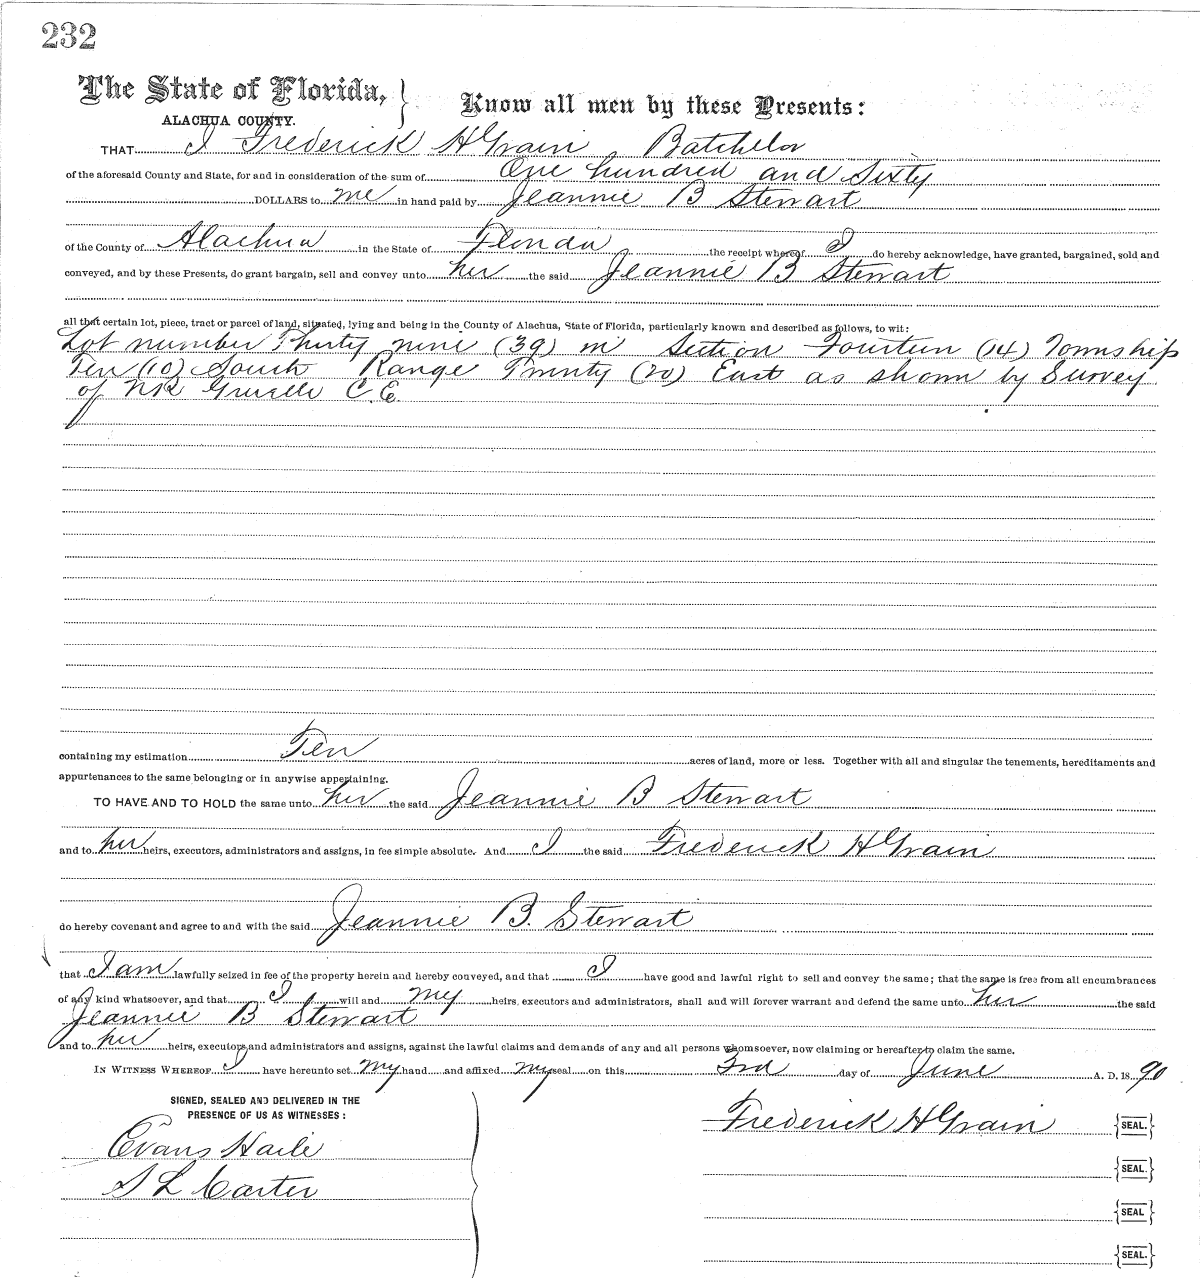 232
The State of Florida, } Know all men by these Presents:
ALACHUA COUNTY.
THAT I Frederick H Grain Batchelor
of the aforesaid County and State, for and in consideration of the sum of One hundred and Sixty
DOLLARS to me in hand paid by Jeannie B Stewart
of the County of Alachua in the State of Florida the receipt whereof I do hereby acknowledge, have granted, bargained, sold and
conveyed, and by these Presents, do grant bargain, sell and convey unto her the said Jeannie B Stewart
all that certain lot, piece, tract or parcel of land, situated, lying and being in the County of Alachua, State of Florida, particularly known and described as follows, to wit:
Lot number Thirty nine (39) in Section Fourteen (14) Township
Ten (10) South Range Twenty (20) East as shown by Survey
of C.E.
containing my estimation Ten acres of land, more or less. Together with all and singular the tenements, hereditaments and
appurtenances to the same belonging or in anywise appertaining.
TO HAVE AND TO HOLD the same unto her the said Jeannie B Stewart
and to her heirs, executors, administrators and assigns, in fee simple absolute. And I the said Frederick H Grain
do hereby covenant and agree to and with the said Jeannie B. Stewart
that I am lawfully seized in fee of the property herein and hereby conveyed, and that I have good and lawful right to sell and convey the same; that the same is free from all encumbrances
of any kind whatsoever, and that I will and my heirs, executors and administrators, shall and will forever warrant and defend the same unto her the said
Jeannie B Stewart
and to her heirs, executors and administrators and assigns, against the lawful claims and demands of any and all persons whomsoever, now claiming or hereafter to claim the same.
IN WITNESS WHEREOF I have hereunto set my hand and affixed my seal on this 3rd day of June A. D. 18 90
SIGNED, SEALED AND DELIVERED IN THE
PRESENCE OF US AS WITNESSES:
Frederick H Grain {SEAL.}
Evans Haile
{SEAL.}
S L Carter
{SEAL}
{SEAL.}